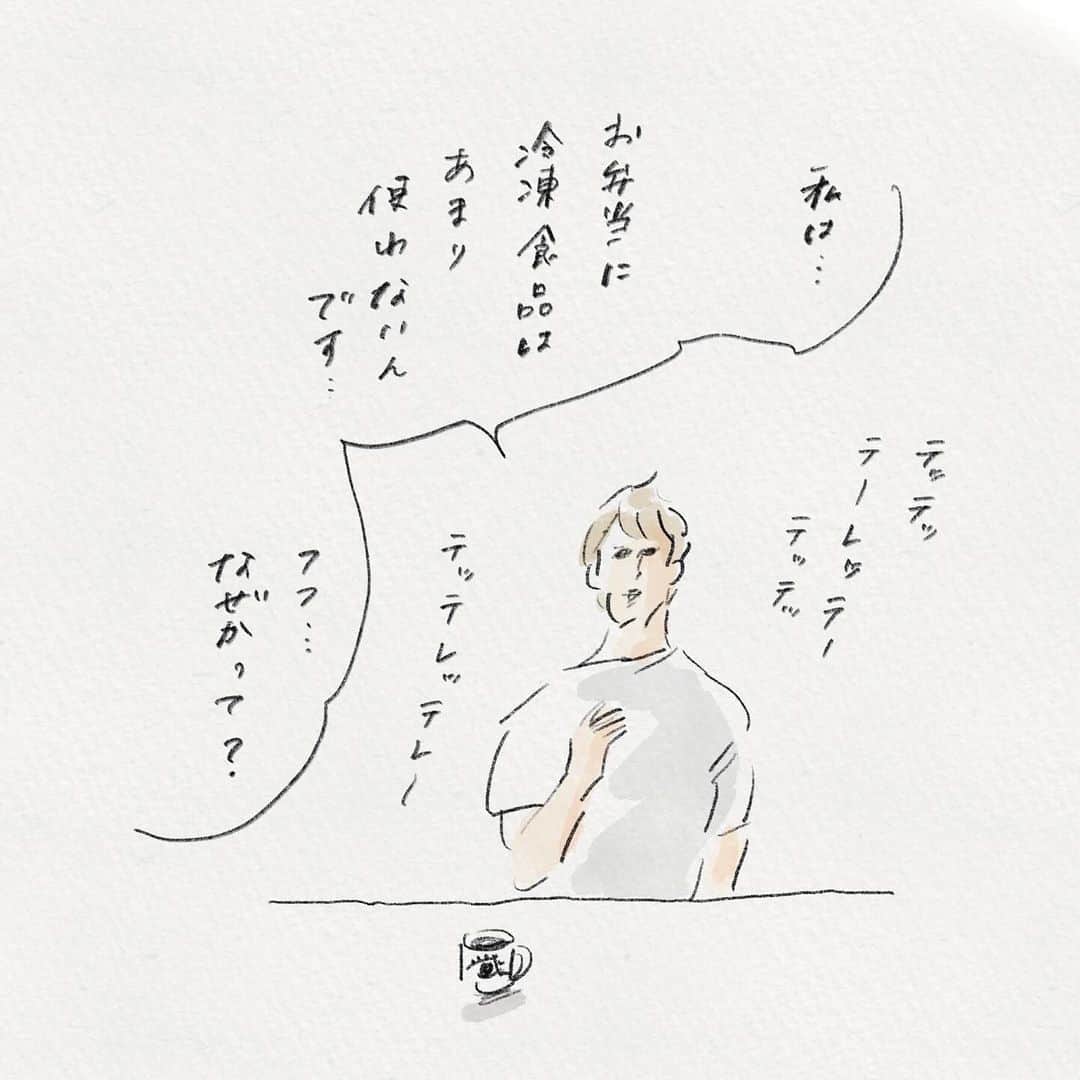 私は…
お弁当に
冷凍食品は
あまり
使わないん
です…
テッテッ
テーレッテー
テッテッ
テッテレッテレー
フフ…
なぜかって？